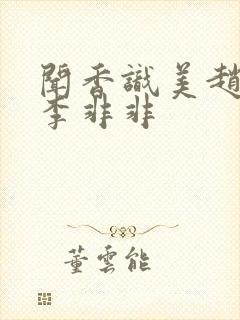 聞香識美趙
李非非
董雲能